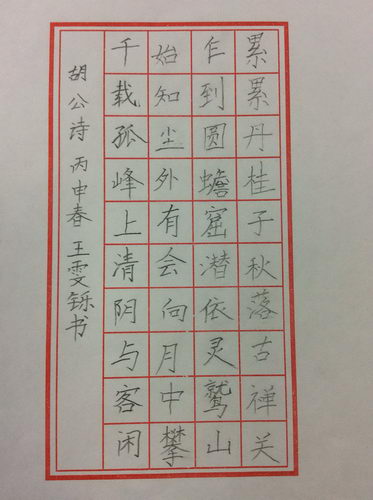 累累丹桂子秋落古禅关
乍到圆蟾窟潜依灵鹫山
始知尘外有会向月中攀
千载孤峰上清阴与客闲
胡公诗丙申春王雯铄书